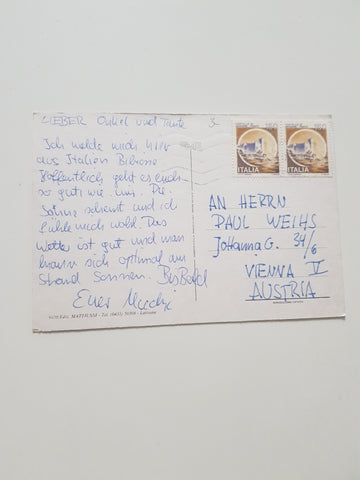 LIEBER Onkel und Tante
Ich melde mich hier
aus Italien Bibione
Hoffentlich geht es euch
so gut wie uns. Die
Sonne scheint und ich
fühle mich wohl. Das
Wetter ist gut und man
kann sich optimal am
Strand Sonnen. Bis Bald
Euer
ITALIA
ITALIA
AN HERRN
PAUL WEIHS
Johanna G. 34/6
VIENNA V
AUSTRIA